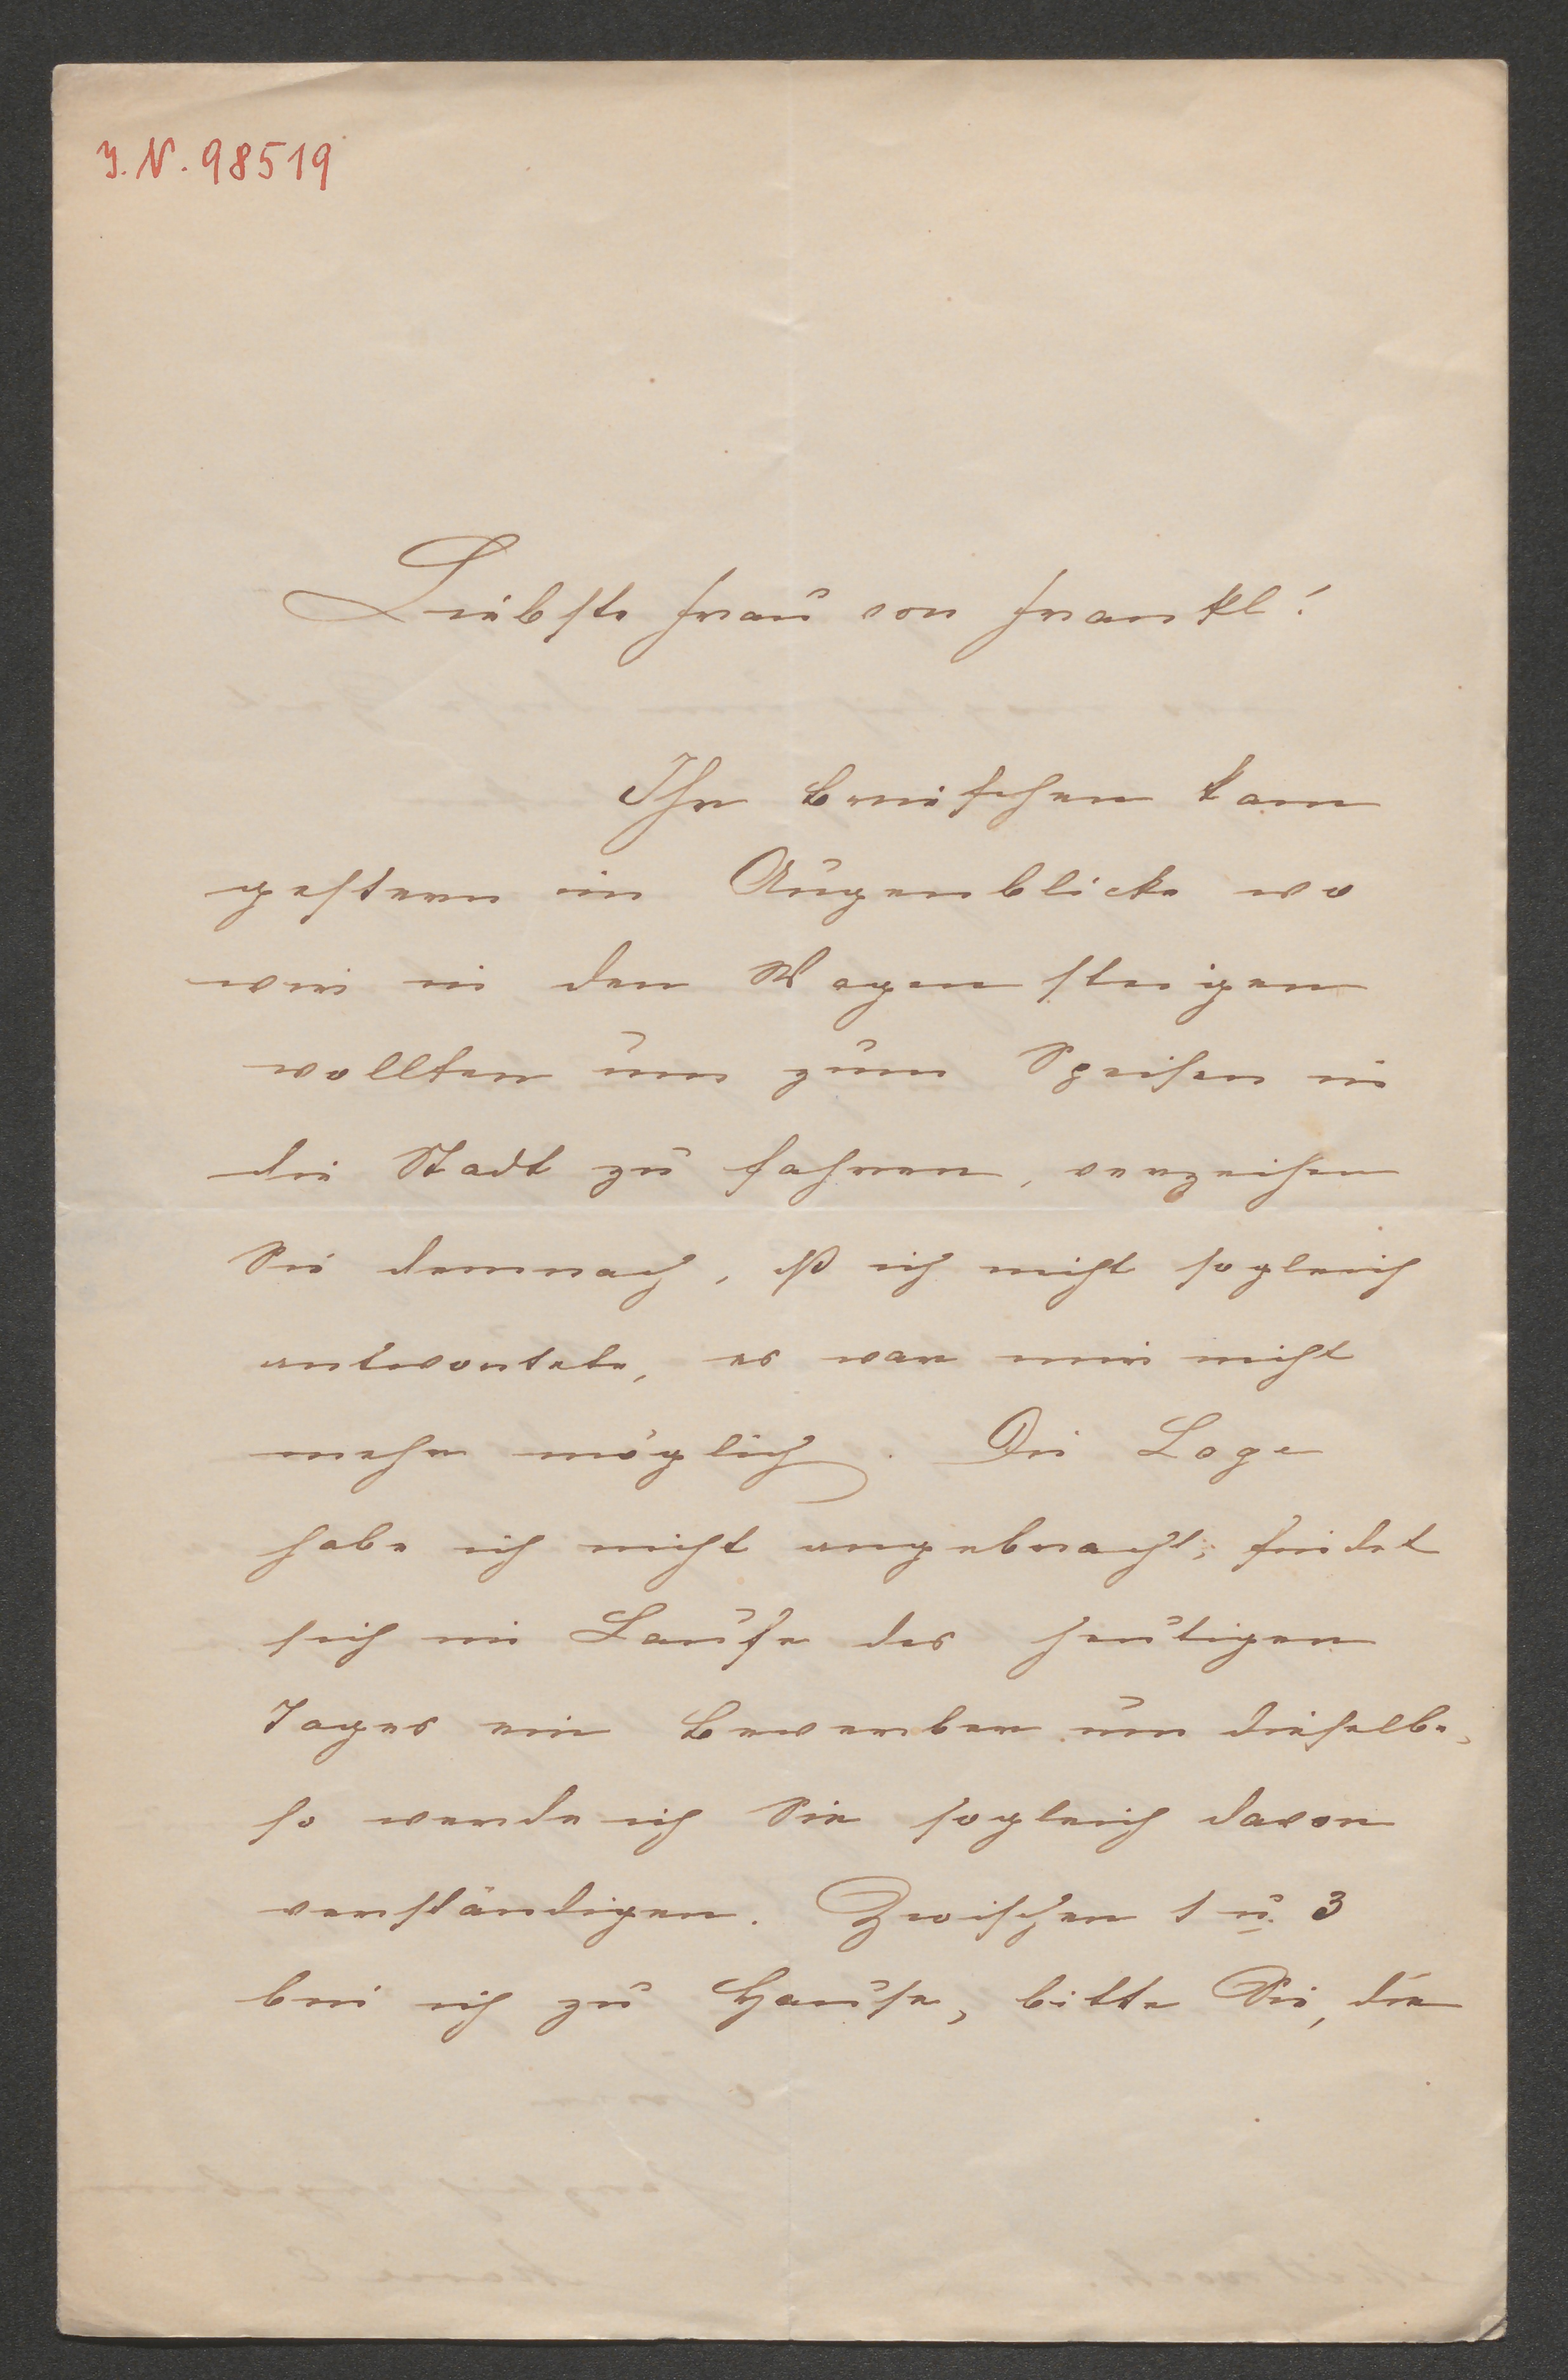 J. N. 98519
Liebste Frau von Frankl!
Ihr Briefchen kam
gestern im Augenblicke wo
wir in den Wagen steigen
wollten um zum Speisen in
die Stadt zu fahren, verzeihen
Sie demnach, dß ich nicht sogleich
antwortete, es war mir nicht
mehr möglich. Die Loge
habe ich nicht angebracht; findet
sich im Laufe des heutigen
Tages ein Bewerber um dieselbe,
so werde ich Sie sogleich davon
verständigen. Zwischen 1 u. 3
bin ich zu Hause, bitte Sie, die